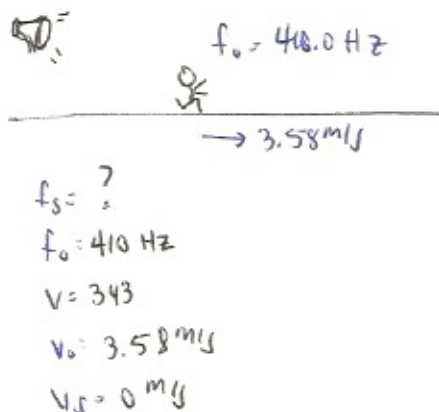 f₀ = Hz
→ 3.58 m/s
fs = ?
f₀ = 410 Hz
V = 343
V₀ = 3.58 m/s
Vs = 0 m/s